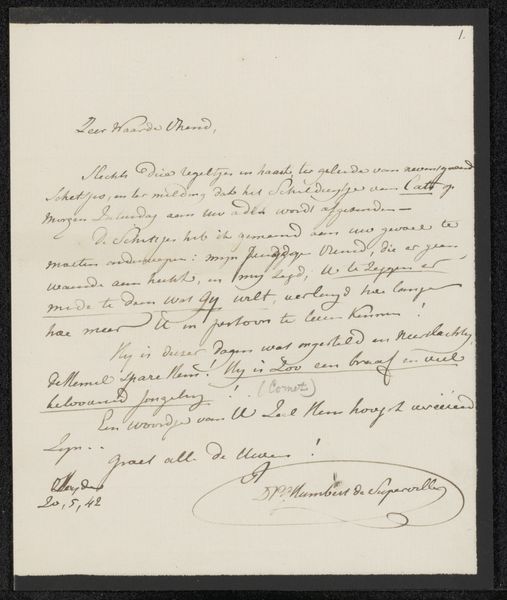 1.
Zeer Waarde Vriend,
Slechts drie regeltjes in haast, ter geleide van nevensgaand
Schetsjes, en ter melding dat het Schilderijtje van Cats op
Morgen Zaturdag aan uw adres wordt afgezonden —
De Schetsjes heb ik gemeend aan uw gevoel te
moeten onderwerpen: mijn Vriend, die er geen
waarde aan hecht, en mij zegd, U te zeggen er
mede te doen wat Gij wilt, verlangd hoe langer
hoe meer U in persoon te leeren kennen!
Hij is dezer dagen wat ongesteld en neerslachtig
de Hemel spare Hem! Hij is Zoo een braaf en veel
beloovend Jongeling! (Cornets)
Een woordje van U Zal Hem hoogst vereerend
Zyn..
groet alle de Uwen!
20, 5, 42
Humbert de Superville